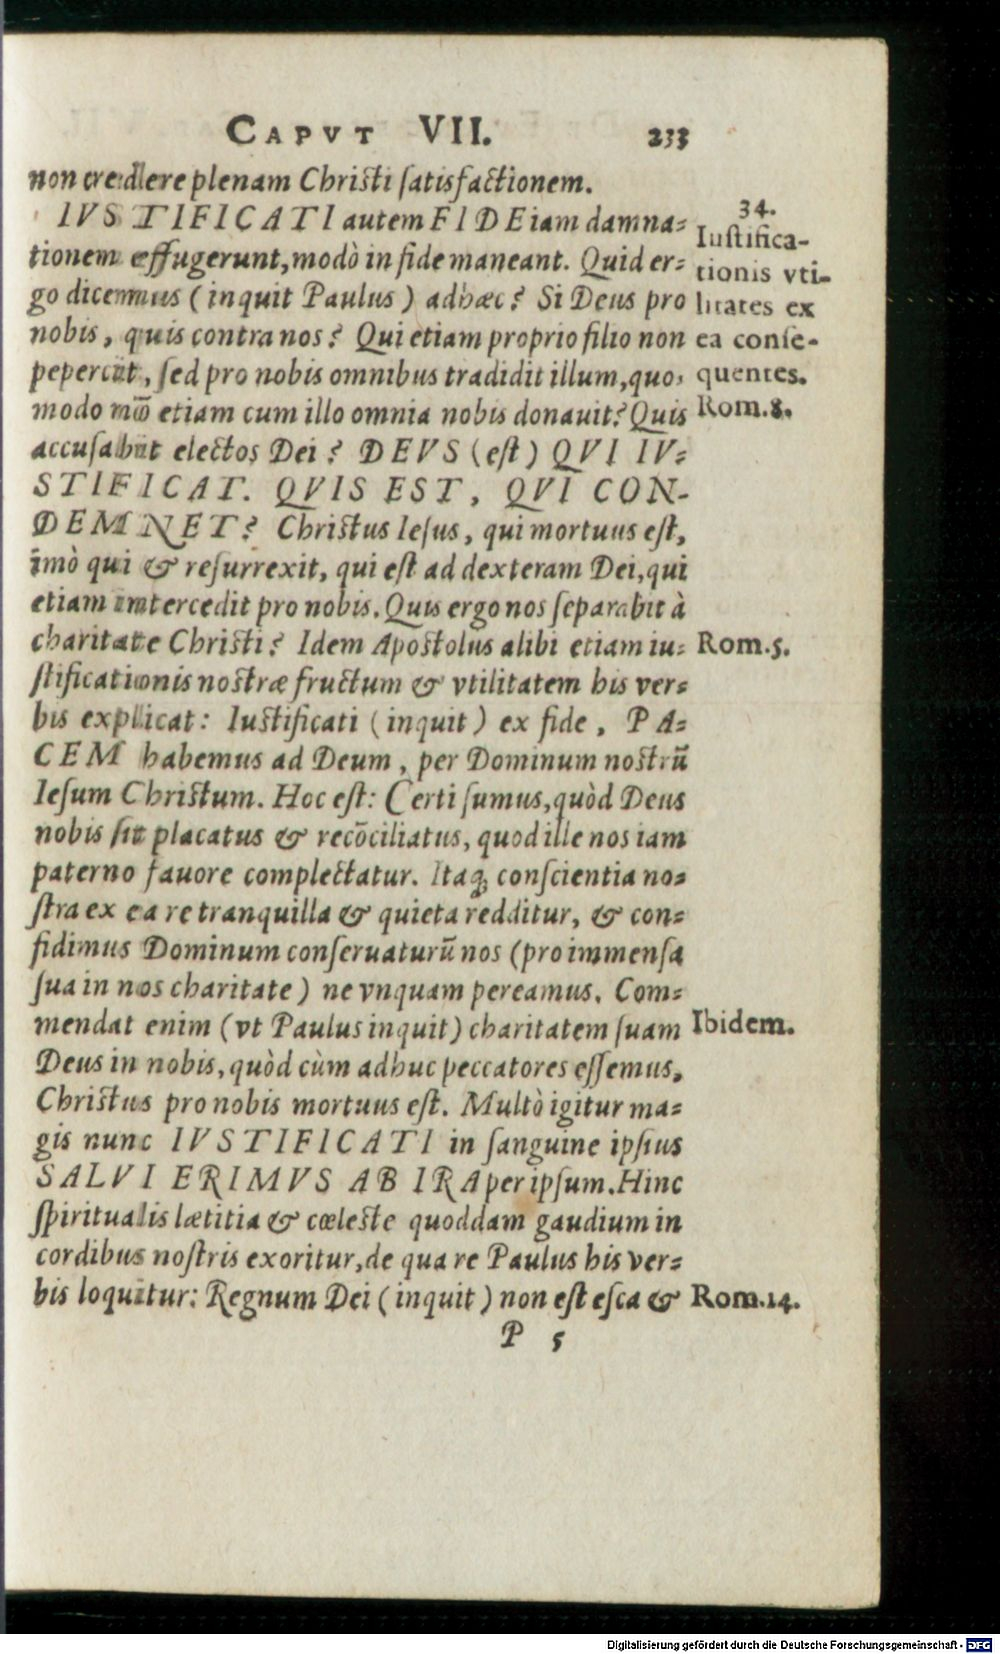 CAPVT VII. 233
non credere plenam Christi satisfactionem.
IVSTIFICATI autem FIDE iam damna-
tionem effugerunt, modò in fide maneant. Quid er-
go dicemus (inquit Paulus) adhæc? Si Deus pro
nobis, quis contra nos? Qui etiam proprio filio non
pepercit, sed pro nobis omnibus tradidit illum, quo-
modo nō etiam cum illo omnia nobis donauit? Quis
accusabit electos Dei? DEVS (est) QVI IV-
STIFICAT. QVIS EST, QVI CON-
DEMNET? Christus Iesus, qui mortuus est,
imò qui & resurrexit, qui est ad dexteram Dei, qui
etiam intercedit pro nobis. Quis ergo nos separabit à
charitate Christi? Idem Apostolus alibi etiam iu-
stificationis nostræ fructum & vtilitatem his ver-
bis explicat: Iustificati (inquit) ex fide, PA-
CEM habemus ad Deum, per Dominum nostrū
Iesum Christum. Hoc est: Certi sumus, quòd Deus
nobis sit placatus & recōciliatus, quod ille nos iam
paterno fauore complectatur. Itaq; conscientia no-
stra ex ea re tranquilla & quieta redditur, & con-
fidimus Dominum conseruaturū nos (pro immensa
sua in nos charitate) ne vnquam pereamus. Com-
mendat enim (vt Paulus inquit) charitatem suam
Deus in nobis, quòd cùm adhuc peccatores essemus,
Christus pro nobis mortuus est. Multò igitur ma-
gis nunc IVSTIFICATI in sanguine ipsius
SALVI ERIMVS AB IRA per ipsum. Hinc
spiritualis lætitia & cœleste quoddam gaudium in
cordibus nostris exoritur, de qua re Paulus his ver-
bis loquitur: Regnum Dei (inquit) non est esca &
P 5
34.
Iustifica-
tionis vti-
litates ex
ea conse-
quentes.
Rom.8.
Rom.5.
Ibidem.
Rom.14.
Digitalisierung gefördert durch die Deutsche Forschungsgemeinschaft - DFG